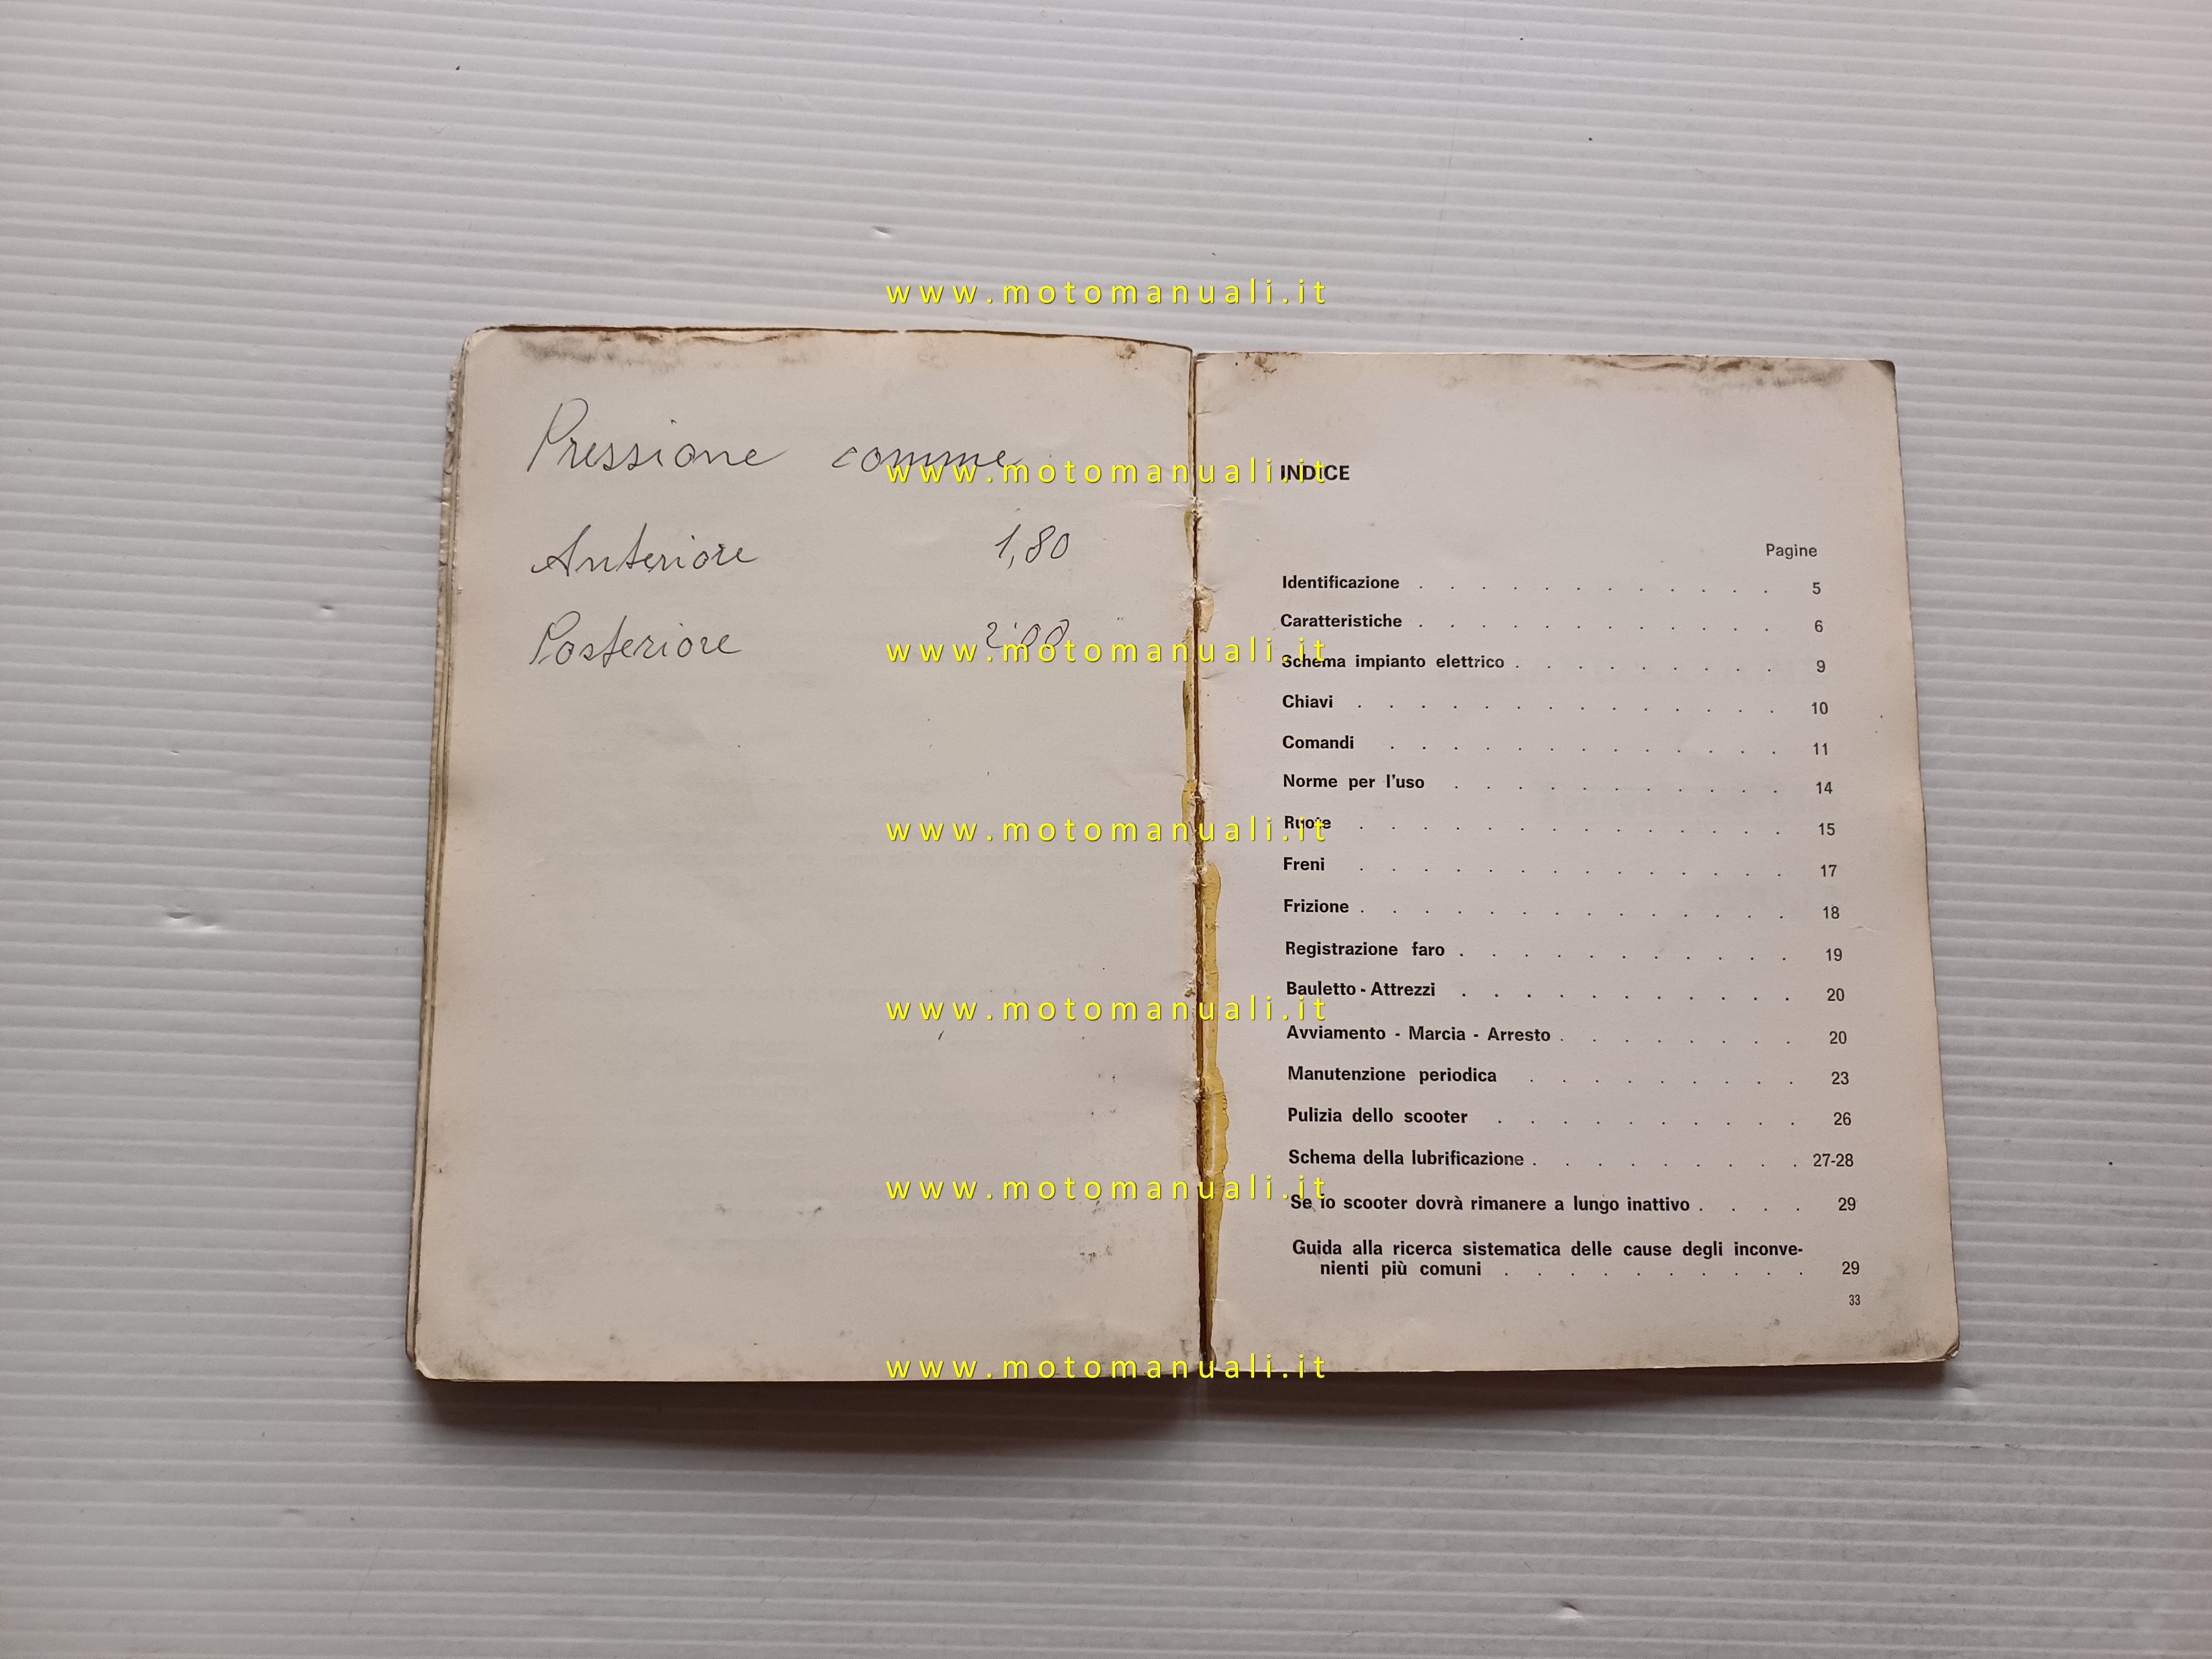 www.motomanuali.it
Pressione comme
www.motomanuali.it
Anteriore 1,80
Posteriore 2,00
www.motomanuali.it
www.motomanuali.it
www.motomanuali.it
www.motomanuali.it
www.motomanuali.it
INDICE
Pagine
Identificazione . . . . . . . . . . . . 5
Caratteristiche . . . . . . . . . . . . 6
Schema impianto elettrico . . . . . . . . . 9
Chiavi . . . . . . . . . . . . . . 10
Comandi . . . . . . . . . . . . . 11
Norme per l'uso . . . . . . . . . . . 14
Ruote . . . . . . . . . . . . . . 15
Freni . . . . . . . . . . . . . . 17
Frizione . . . . . . . . . . . . . . 18
Registrazione faro . . . . . . . . . . . 19
Bauletto - Attrezzi . . . . . . . . . . . 20
Avviamento - Marcia - Arresto . . . . . . . . 20
Manutenzione periodica . . . . . . . . . 23
Pulizia dello scooter . . . . . . . . . . 26
Schema della lubrificazione . . . . . . . . . 27-28
Se lo scooter dovrà rimanere a lungo inattivo . . . . 29
Guida alla ricerca sistematica delle cause degli inconve-
nienti più comuni . . . . . . . . . . 29
33